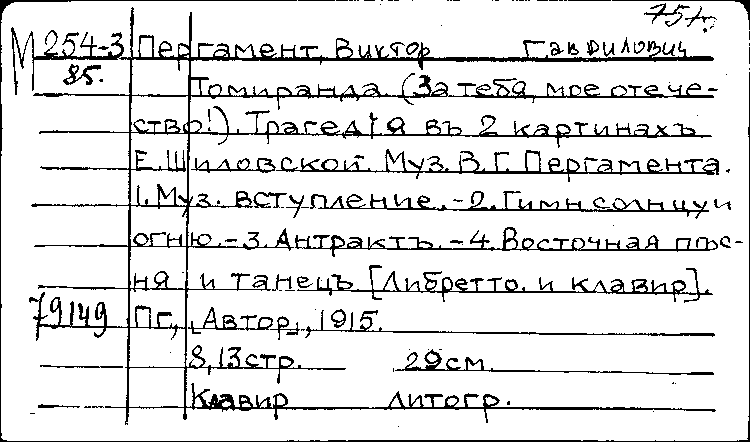 75к.
М 254-3 Пергамент, Виктор Гаврилович
85.
Томиранда. (За тебя, мое отече-
ство!). Трагедія въ 2 картинахъ
Е. Шиловской. Муз. В. Г. Пергамента.
1. Муз. вступление. - 2. Гимн солнцу и
огню. - 3. Антрактъ. - 4. Восточная пѣс-
ня и танецъ [Либретто. и клавир].
79149 Пг., [Автор], 1915.
8, 13 стр. 29 см.
Клавир литогр.